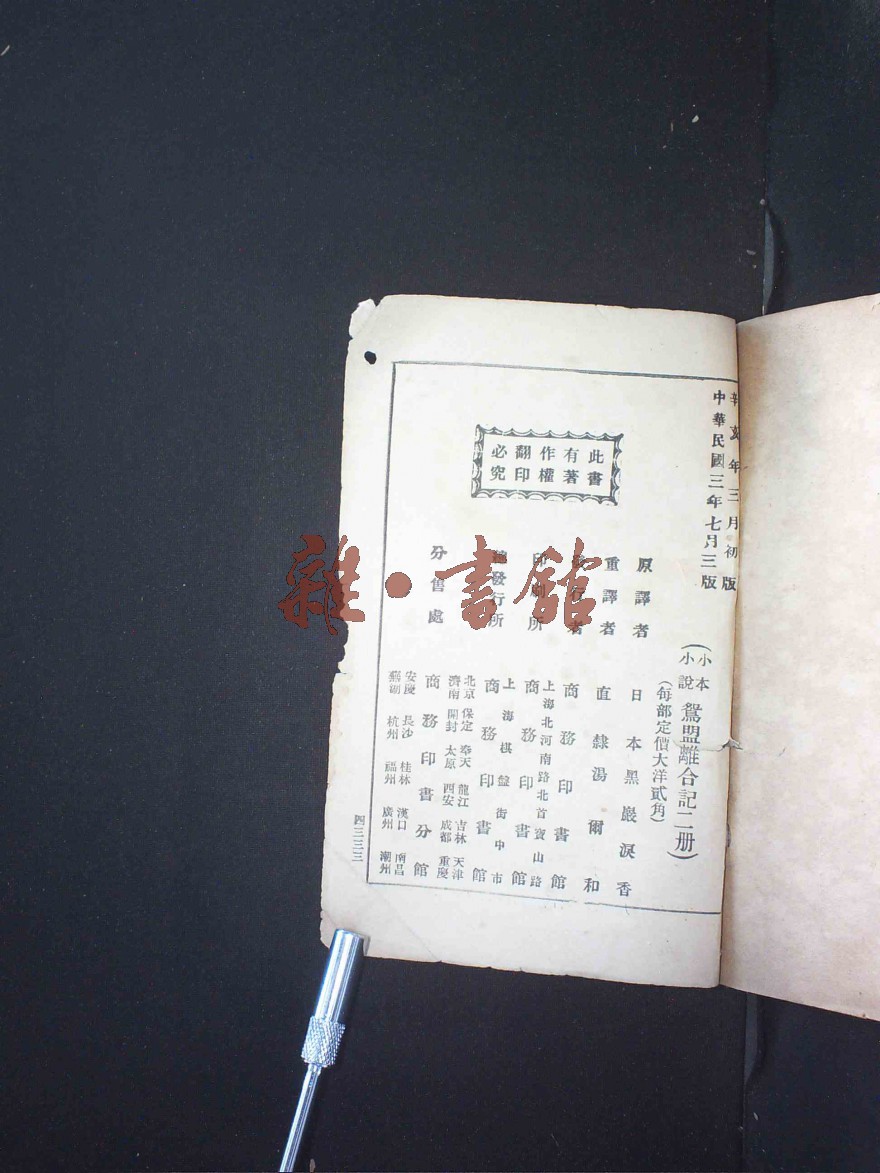 辛亥年三月初版
中華民國三年七月三版
(小本小說 鴛盟離合記二册)
(每部定價大洋貳角)
此書有著作權翻印必究
原譯者 日本黑巖淚香
重譯者 直隸湯爾和
發行者 商務印書館
上海北河南路北首寶山路
印刷所 商務印書館
上海棋盤街中市
總發行所 商務印書館
北京 保定 奉天 龍江 吉林 天津
濟南 開封 太原 西安 成都 重慶
分售處 商務印書分館
安慶 長沙 桂林 漢口 南昌
蕪湖 杭州 福州 廣州 潮州
四三三三
雜·書館